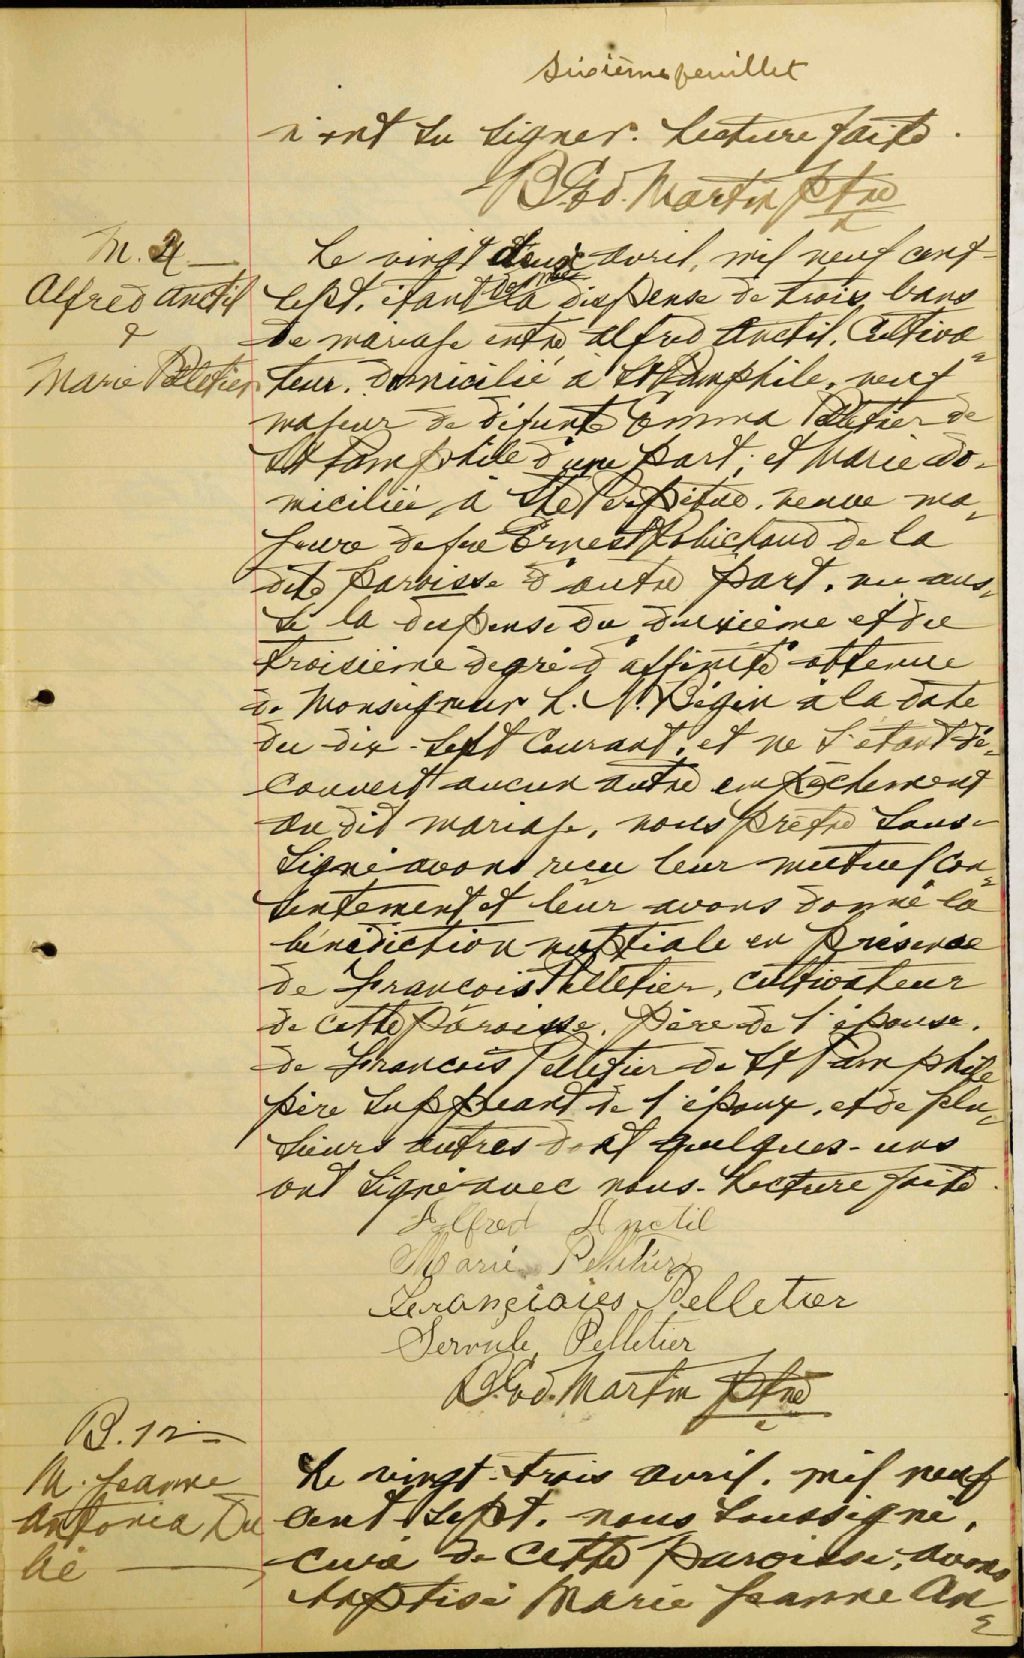 Sixième feuillet
n'ont su signer. Lecture faite.
B God. Martin Ptre
M. 4
Alfred Anctil
&
Marie Pelletier
Le vingt deux avril, mil neuf cent
sept, étant donnée la dispense de trois bans
de mariage entre Alfred Anctil, Cultiva=
teur, domicilié à St Pamphile, veuf
majeur de défunte Emma Pelletier de
St Pamphile d'une part; et Marie do-
miciliée à Ste Perpétue, veuve ma-
jeure de feu Ernest Robichaud de la
dite paroisse d'autre part, vu aus-
si la dispense du deuxième et du
troisième degré d'affinité obtenue
de Monseigneur L. N. Bégin à la date
du dix-sept courant, et ne s'étant dé-
couvert aucun autre empêchement
au dit mariage, nous prêtre sous-
signé avons reçu leur mutuel con=
sentement et leur avons donné la
bénédiction nuptiale en présence
de François Pelletier, cultivateur
de cette paroisse, père de l'épouse,
de François Pelletier de St Pamphile
père suppléant de l'époux, et de plu-
sieurs autres dont quelques-uns
ont signé avec nous. Lecture faite.
Alfred Anctil
Marie Pelletier
Pelletier
Servule Pelletier
B. God. Martin Ptre
B. 12
M. Jeanne
Antonia Du
bé
Le vingt-trois avril, mil neuf
cent sept, nous soussigné,
curé de cette paroisse, avons
baptisé Marie Jeanne An=